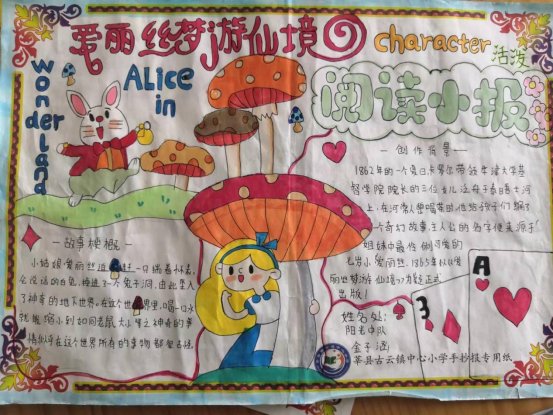 爱丽丝梦游仙境
character
活泼
wonderland
Alice
in
阅读小报
— 创作背景 —
1862年的一个夏日卡罗尔带领牛津大学基
督学院院长的三位女儿泛舟于春日大河
上,在河岸小憩喝茶时,他给孩子们编了
一个奇幻故事,主人公的名字便来源于
姐妹中最伶俐可爱的
七岁小爱丽丝,1865年
丽丝梦游仙境 正式
出版!
— 故事梗概 —
小姑娘爱丽丝追 一只揣着怀表、
会说话的白兔,掉进了一个兔子洞,由此坠入
了神奇的地下世界,在这个世界里,喝一口水
就能缩小到如同老鼠大小 神奇的事
情 在这个世界所有的事物都
姓名处:
阳光中队
金子涵
莘县古云镇中心小学手抄报专用纸
3
A